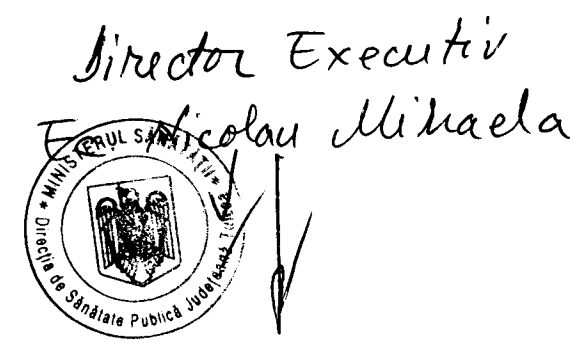 Director Executiv
Ec. Nicolau Mihaela
* MINISTERUL SĂNĂTĂȚII *
Direcția de Sănătate Publică Județeană